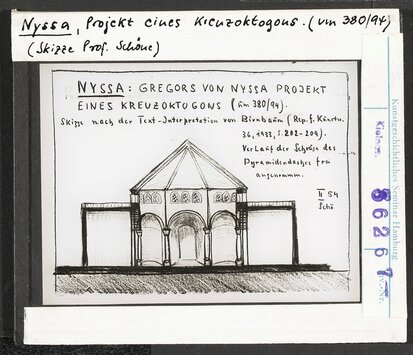 Nyssa, Projekt eines Kreuzoktogons. (um 380/94)
(Skizze Prof. Schöne)
NYSSA: GREGORS VON NYSSA PROJEKT
EINES KREUZOKTOGONS (um 380/94).
Skizze nach der Text-Interpretation von Birnbaum (Rep. f. Kunstw.
36, 1933, S. 202-209).
Verlauf der Schräge des
Pyramidendaches frei
angenommen.
II 54
Schö
Kunstgeschichtliches Seminar Hamburg
86267